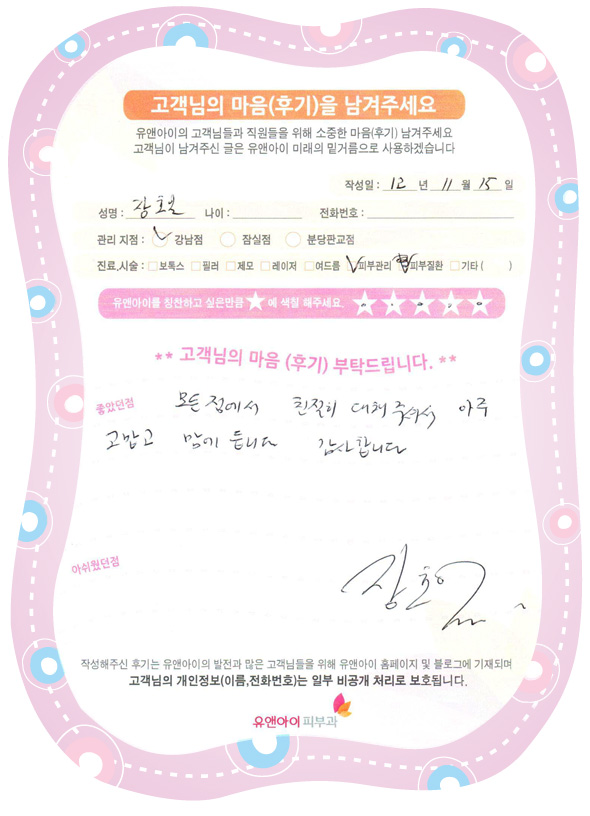 고객님의 마음(후기)을 남겨주세요
유앤아이의 고객님들과 직원들을 위해 소중한 마음(후기) 남겨주세요
고객님이 남겨주신 글은 유앤아이 미래의 밑거름으로 사용하겠습니다
작성일 : 12 년 11 월 15 일
성명 : 장 나이 : 전화번호 :
관리 지점 : 강남점 잠실점 분당판교점
진료,시술 : 보톡스 필러 제모 레이저 여드름 피부관리 피부질환 기타 ( )
유앤아이를 칭찬하고 싶은만큼 에 색칠 해주세요.
** 고객님의 마음 (후기) 부탁드립니다. **
좋았던점 모든 점에서 친절히 대해 주셔서 아주
고맙고 맘에 듭니다 감사합니다
아쉬웠던점
작성해주신 후기는 유앤아이의 발전과 많은 고객님들을 위해 유앤아이 홈페이지 및 블로그에 기재되며
고객님의 개인정보(이름,전화번호)는 일부 비공개 처리로 보호됩니다.
유앤아이 피부과